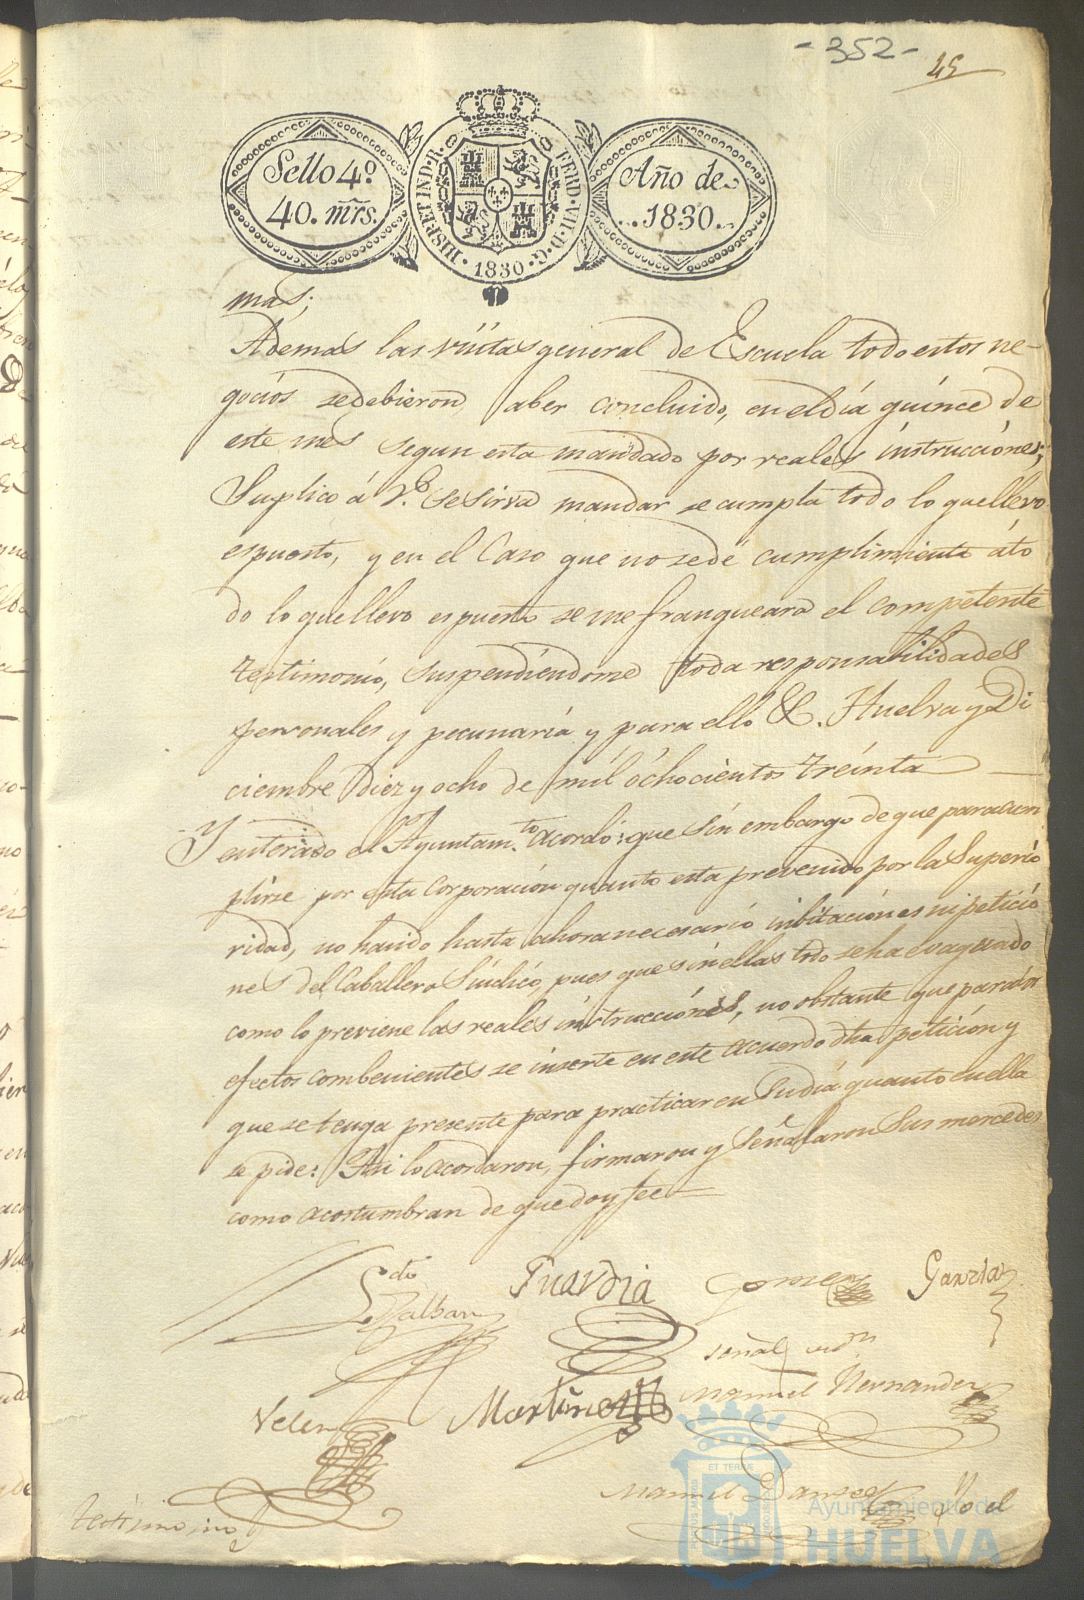 - 352 -
45
Sello 4º
40. mrs.
HISP. ET IND. R.
FERD. VII. D. G.
1830
Año de
1830.
mas;
Ademas las visitas general de Escuela todo estos ne-
gocios se debieron aber concluido, en el día quínce de
este mes segun esta mandado por reales instrucciónes;
Suplico á V.S. se sirva mandar se cumpla todo lo que llevo
espuesto, y en el Caso que no se dé cumplimiento áto
do lo que llevo espuesto se me franqueara el competente
testimonio, suspendiéndome toda responsabilidades
personales y pecunaría y para ello &. Huelva y Di
ciembre Diez y ocho de mil óchocientos treínta
Y enterado el Ayuntam.to acordó: que sín embargo de que para cum
plirse por esta Corporación quanto esta prevenido por la Superio
ridad, no haido hasta ahora necesario inbitaciónes ni petició
nes del Caballero Síndicó, pues que sin ellas todo se ha evaquado
como lo previene las reales instrucciónes, no obstante que para los
efectos combenientes se inserte en este acuerdo dha petición y
que se tenga presente para practicar en su día quanto en ella
se pide: Asi lo acordaron, firmaron y señalaron sus mercedes
como acostumbran de que doy fee
Ldo
Guardia
Garzia
señal
Manuel Hernandez
Velez
Martinez
Manuel
testimonio
ET TERRE
Ayuntamiento de
HUELVA